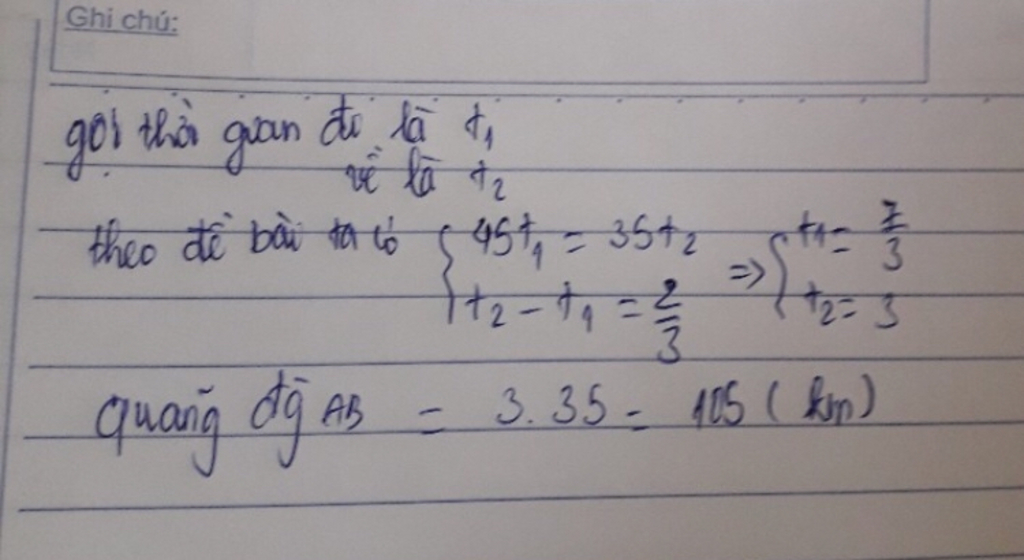 Ghi chú:
gọi thời gian đi là t₁
về là t₂
theo đề bài ta có { 45t₁ = 35t₂ => { t₁ = 7/3
t₂ - t₁ = 2/3 t₂ = 3
Quãng đg AB = 3.35 = 105 (km)